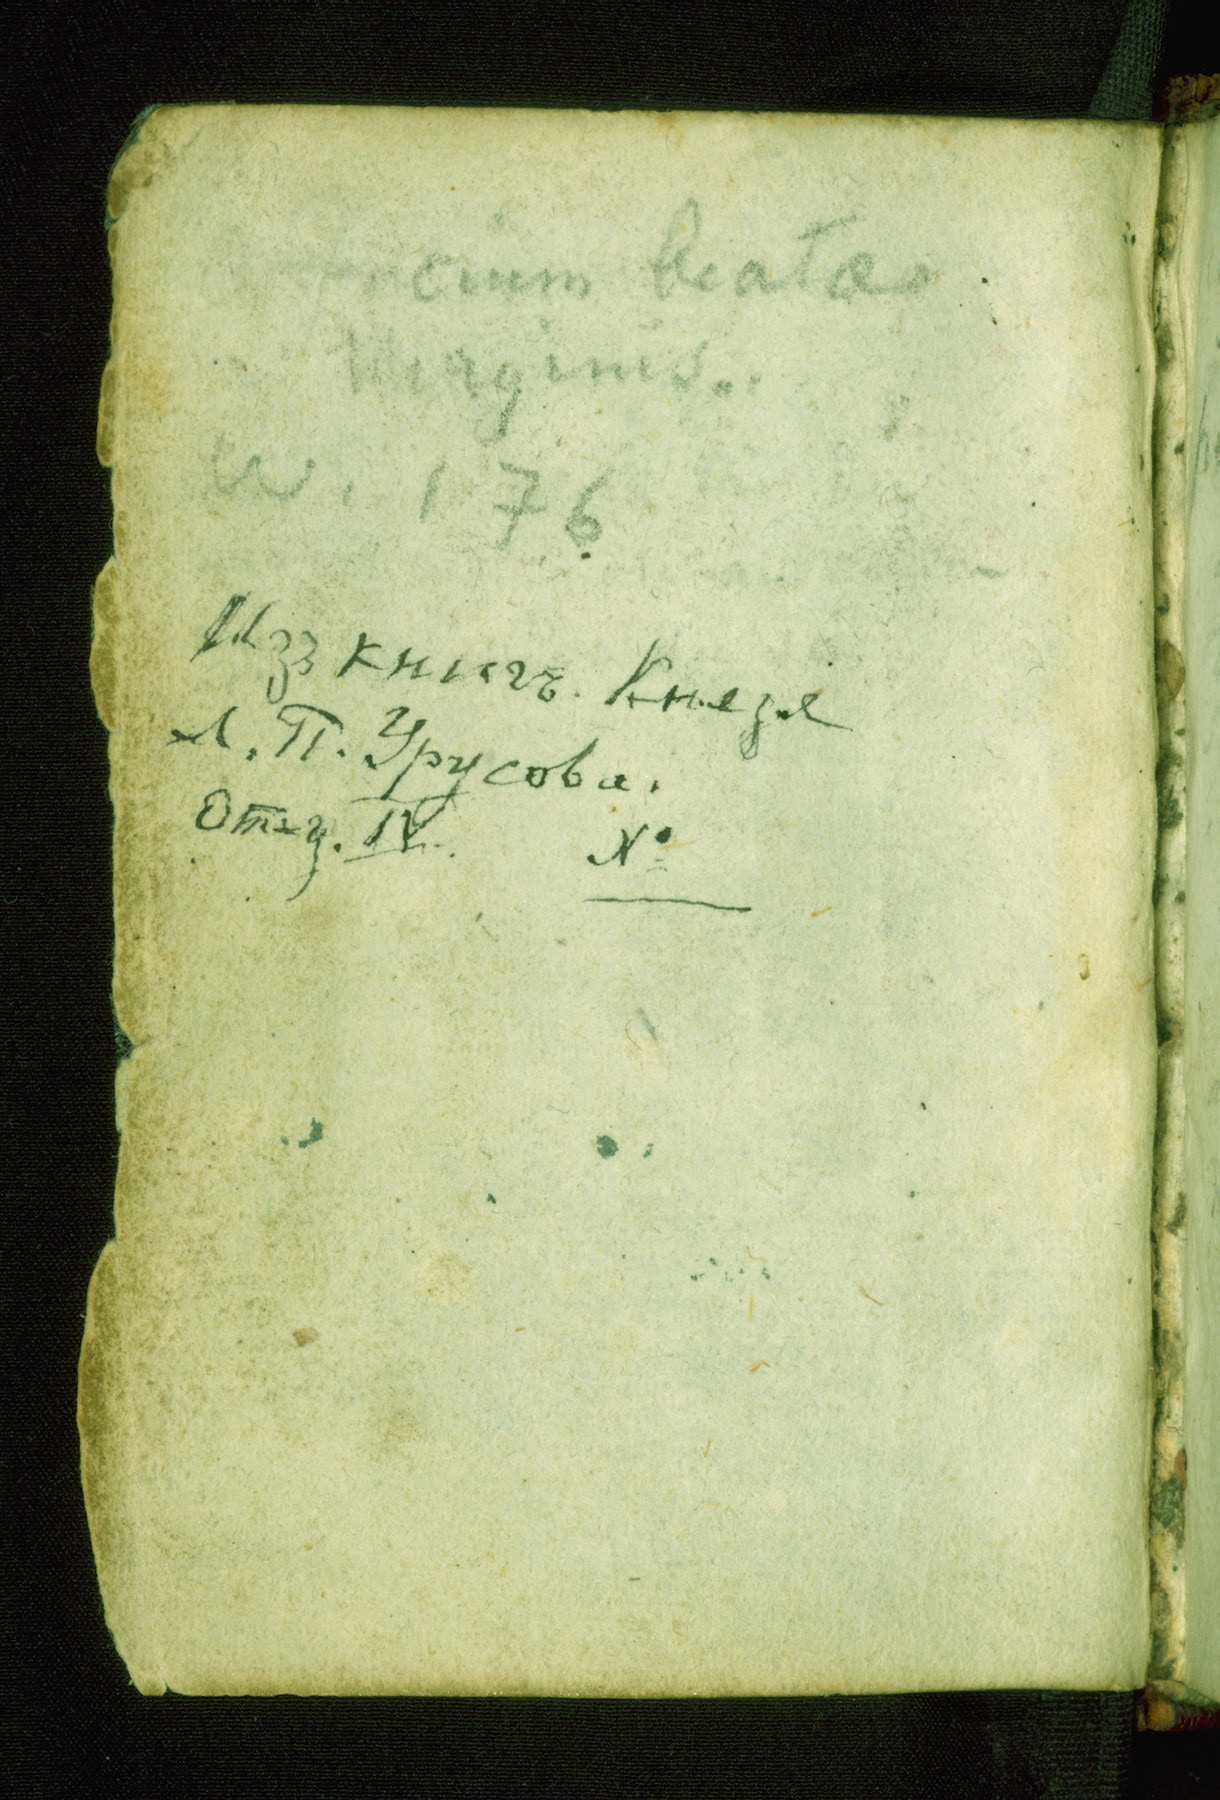 officium beatae
Virginis.
W. 176
Изъ книгъ Князя
Л. П. Урусова.
Отд. IV. №